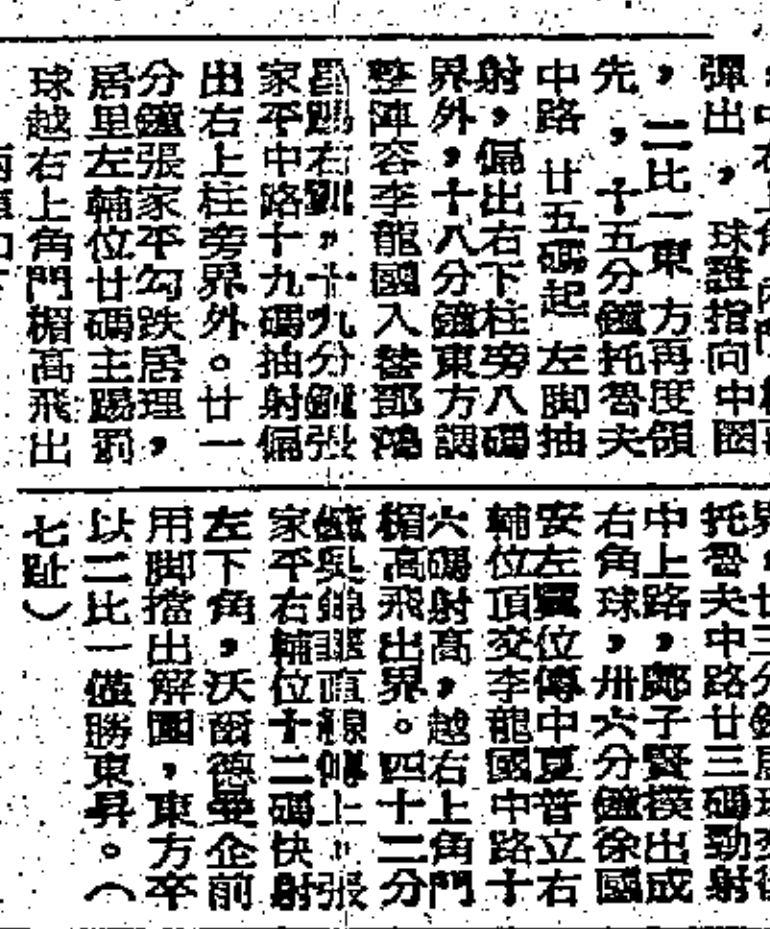 彈出，球證指向中圈
，二比一東方再度領
先，十五分鐘托魯夫
中路廿五碼起左脚抽
射，偏出右下柱旁八碼
界外，十八分鐘東方調
整陣容李龍國入替鄧鴻
昌踢右翼，十九分鐘張
家平中路十九碼抽射偏
出右上柱旁界外。廿一
分鐘張家平勾跌居理，
居里左輔位廿碼主踢罰
球越右上角門楣高飛出
托魯夫中路廿三碼勁射
中上路，鄺子賢撲出成
右角球，卅六分鐘徐國
安左翼位傳中夏普立右
輔位頂交李龍國中路十
六碼射高，越右上角門
楣高飛出界。四十二分
家平右輔位十二碼快射
左下角，沃爾德曼企前
用脚擋出解圍，東方卒
以二比一僅勝東昇。（
七趾）